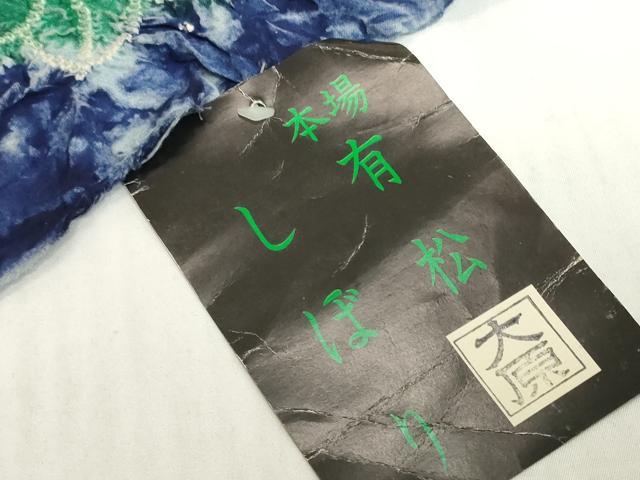 本場
有松
しぼり
大原